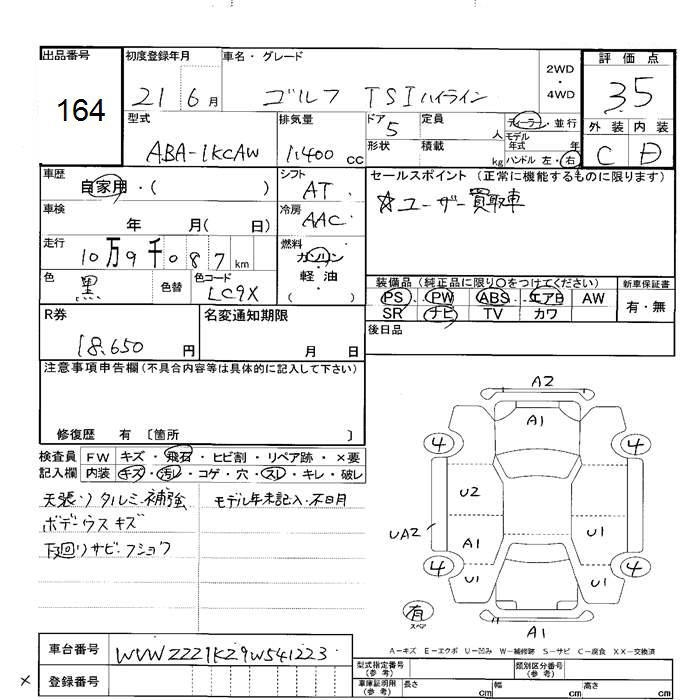 出品番号 初度登録年月 車名・グレード 評価点
164 21 6月 ゴルフ TSIハイライン 2WD 4WD 3.5
型式 排気量 ドア 定員 ディーラー・並行 外装 内装
ABA-1KCAW 1,400cc 5 人 モデル年式 年 C D
形状 積載 kg ハンドル 左・右
車歴 シフト セールスポイント (正常に機能するものに限ります)
自家用・( ) AT ☆ユーザー買取車
車検 冷房
年 月( 日) AAC
走行 燃料
10万9千087km ガソリン・軽・油 ( )
色 色替 色コード 装備品(純正品に限り○をつけてください) 新車保証書
黒 LC9X PS・PW・ABS・エアB AW 有・無
SR ナビ TV カワ
R券 名変通知期限 後日品
18,650円 月 日
注意事項申告欄(不具合内容等は具体的に記入して下さい)
修復歴 有 〔箇所 〕
検査員 FW キズ・飛石・ヒビ割・リペア跡・×要
記入欄 内装 キズ・汚レ・コゲ・穴・スレ・キレ・破レ
天張リタルミ、補強 モデル年未記入、不日月
ボデーウスキズ
下回りサビ・フショク
A2
A1
4 4
U2
UA2 A1 U1
4 U1 U1 4
有
スペア
A1
A-キズ E-エクボ U-凹み W-補修跡 S-サビ C-腐食 XX-交換済
車台番号 WVWZZZ1KZ9W541223 型式指定番号(参考) 類別区分番号(参考)
× 登録番号 車庫証明用(参考) 長さ cm 幅 cm 高さ cm